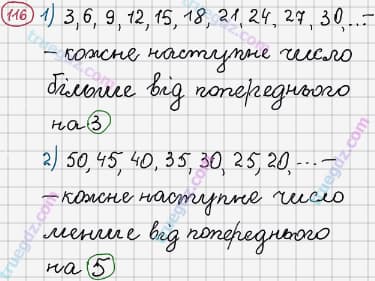 116 1) 3, 6, 9, 12, 15, 18, 21, 24, 27, 30, ... –
– кожне наступне число
більше від попереднього
на 3
2) 50, 45, 40, 35, 30, 25, 20, ... –
– кожне наступне число
менше від попереднього
на 5
truegdz.com
truegdz.com
truegdz.com
truegdz.com